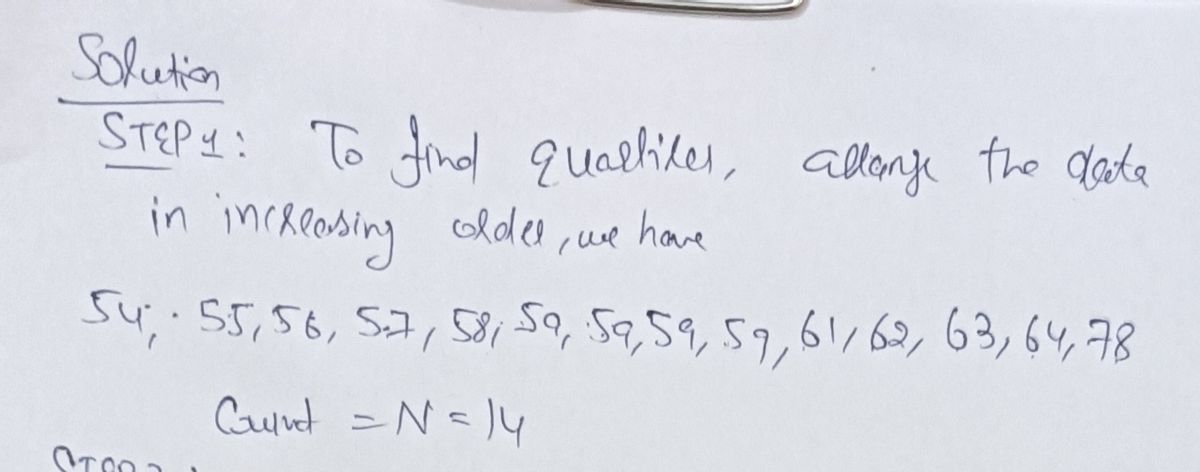 Solution
STEP 1: To find quartiles, arrange the data
in increasing order, we have
54, 55, 56, 57, 58, 59, 59, 59, 59, 61, 62, 63, 64, 78
Count = N = 14